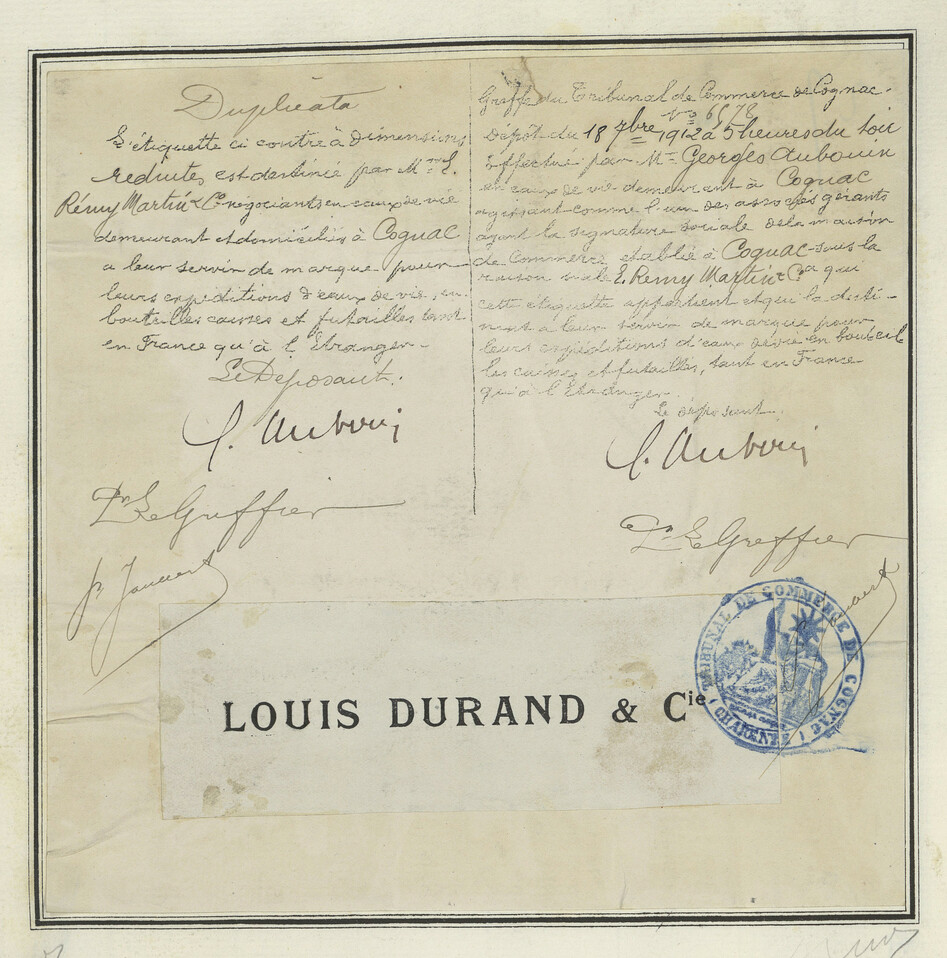 Duplicata
L'étiquette ci contre à dimensions
réduites est destinée par Mrs E.
Rémy Martin & Cie négociants en eaux de vie
demeurant et domiciliés à Cognac
a leur servir de marque pour
leurs expéditions d'eaux de vie, en
bouteilles caisses et futailles tant
en France qu'à l'Etranger.
Le Deposant.
G. Aubouin
Pr Le Greffier
Greffe du Tribunal de Commerce de Cognac.
No 6678
Depôt du 18 7bre 1912 à 5 heures du soir
Effectué par Mr Georges Aubouin
en eaux de vie demeurant à Cognac
agissant comme l'un des associés gérants
ayant la signature sociale de la maison
de Commerce etablie à Cognac sous la
raison sociale E. Remy Martin & Co a qui
cette etiquette appartient et qui la desti-
nent a leur servir de marque pour
leurs expéditions d'eaux de vie en bouteil
les caisses et futailles, tant en France
qu'à l'Etranger.
Le deposant.
G. Aubouin
Pr Le Greffier
LOUIS DURAND & Cie
TRIBUNAL DE COMMERCE DE COGNAC (CHARENTE)